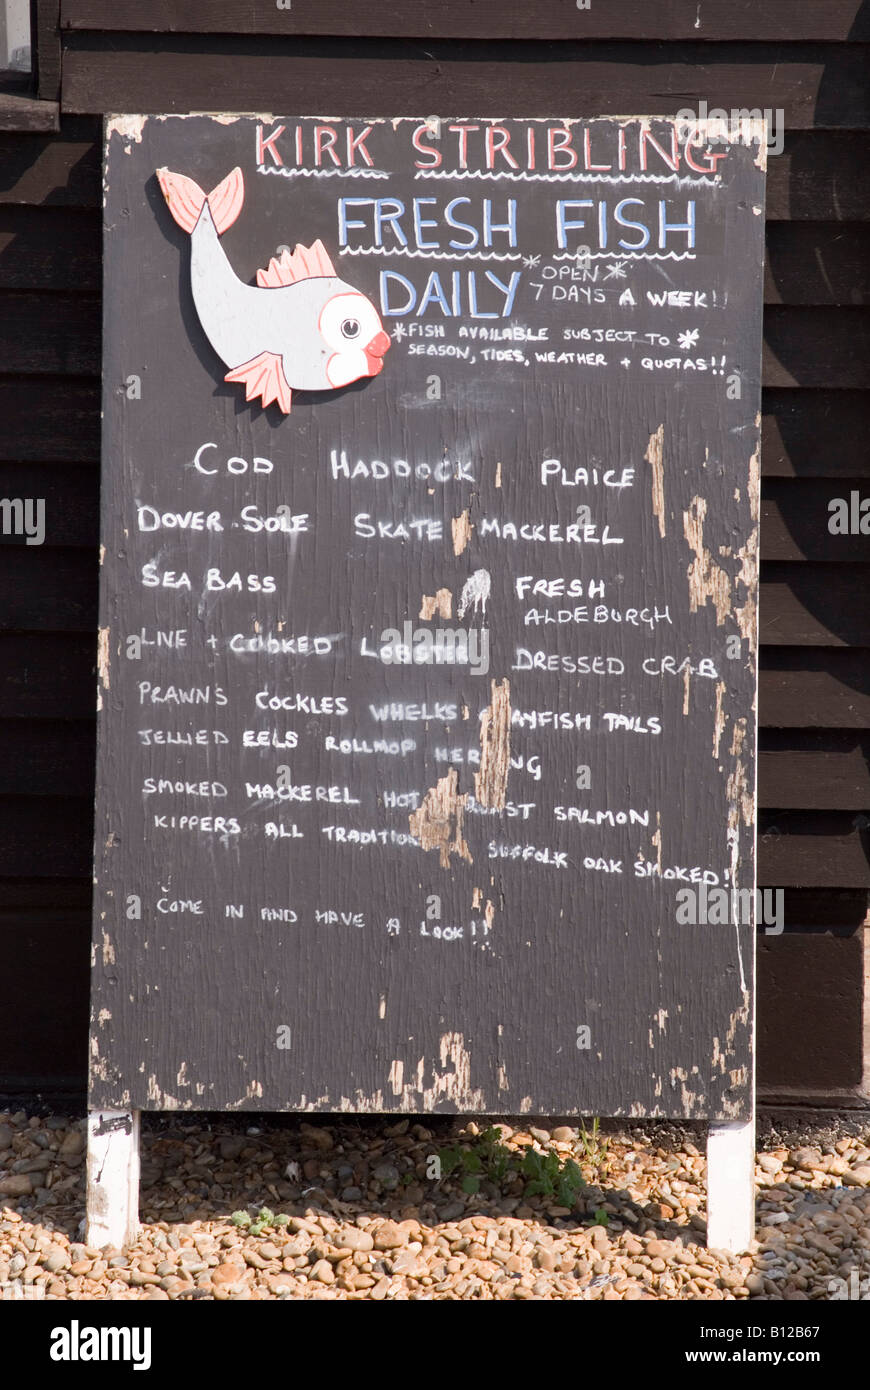 KIRK STRIBLING
FRESH FISH
DAILY
*OPEN*
7 DAYS A WEEK!!
*FISH AVAILABLE SUBJECT TO *
SEASON, TIDES, WEATHER + QUOTAS!!
COD HADDOCK PLAICE
DOVER SOLE SKATE MACKEREL
SEA BASS FRESH
ALDEBURGH
LIVE + COOKED LOBSTER DRESSED CRAB
PRAWNS COCKLES WHELKS AYFISH TAILS
JELLIED EELS ROLLMOP HER NG
SMOKED MACKEREL HOT AST SALMON
KIPPERS ALL TRADITION SUFFOLK OAK SMOKED!
COME IN AND HAVE A LOOK!!
alamy
alamy stock photo
B12B67
www.alamy.com